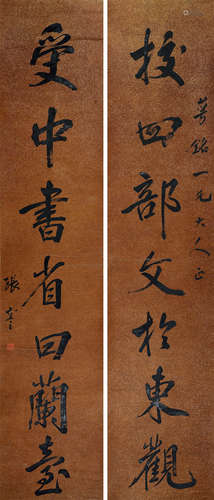 校四部文於東觀
銘一兄大人正
受中書省曰蘭臺
張